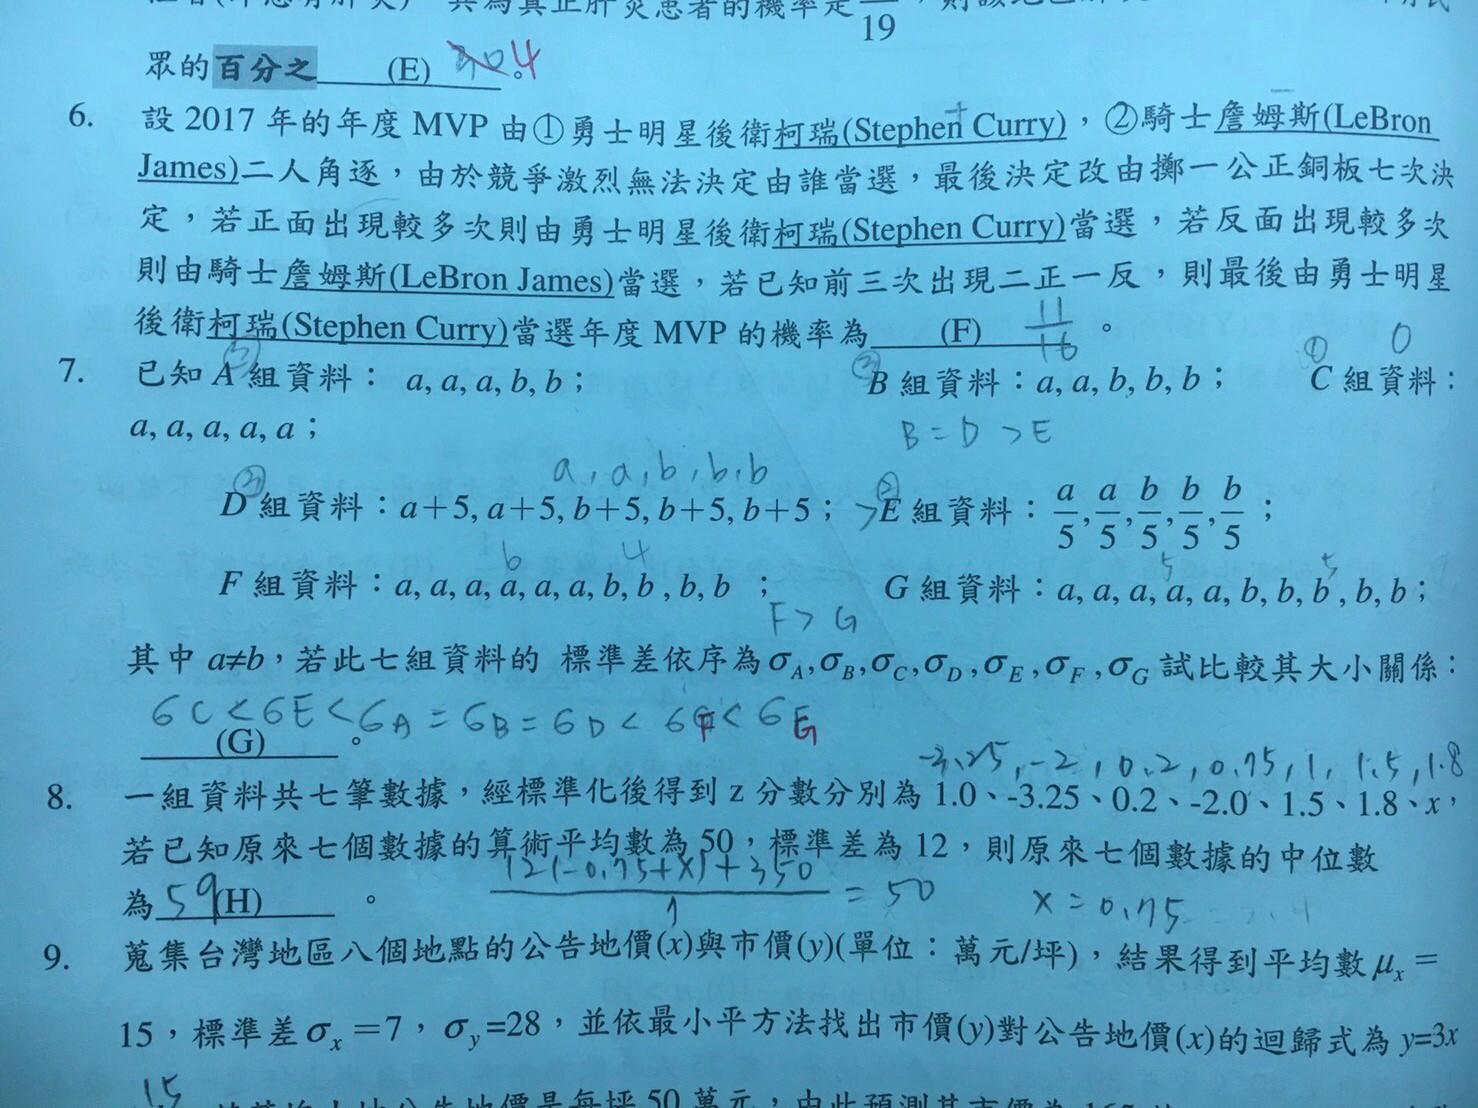 眾的百分之 (E) 4。
6. 設 2017 年的年度 MVP 由①勇士明星後衛柯瑞(Stephen Curry)，②騎士詹姆斯(LeBron
James)二人角逐，由於競爭激烈無法決定由誰當選，最後決定改由擲一公正銅板七次決
定，若正面出現較多次則由勇士明星後衛柯瑞(Stephen Curry)當選，若反面出現較多次
則由騎士詹姆斯(LeBron James)當選，若已知前三次出現二正一反，則最後由勇士明星
後衛柯瑞(Stephen Curry)當選年度 MVP 的機率為 (F) 11/16 。
7. 已知 A 組資料： a, a, a, b, b； B 組資料：a, a, b, b, b； C 組資料：
a, a, a, a, a；
B = D > E
a, a, b, b, b
D 組資料：a+5, a+5, b+5, b+5, b+5； > E 組資料：a/5, a/5, b/5, b/5, b/5；
F 組資料：a, a, a, a, a, a, b, b , b, b ； G 組資料：a, a, a, a, a, b, b, b , b, b；
F > G
其中 a≠b，若此七組資料的 標準差依序為σA,σB,σC,σD,σE,σF,σG 試比較其大小關係：
6C < 6E < 6A = 6B = 6D < 6F < 6G
(G) 。
-3.25, -2, 0.2, 0.75, 1, 1.5, 1.8
8. 一組資料共七筆數據，經標準化後得到 z 分數分別為 1.0、-3.25、0.2、-2.0、1.5、1.8、x，
若已知原來七個數據的算術平均數為 50，標準差為 12，則原來七個數據的中位數
12(-0.75+x)+350 / 7 = 50 x = 0.75
為 59 (H) 。
9. 蒐集台灣地區八個地點的公告地價(x)與市價(y)(單位：萬元/坪)，結果得到平均數 μx =
15，標準差 σx =7，σy=28，並依最小平方法找出市價(y)對公告地價(x)的迴歸式為 y=3x
15